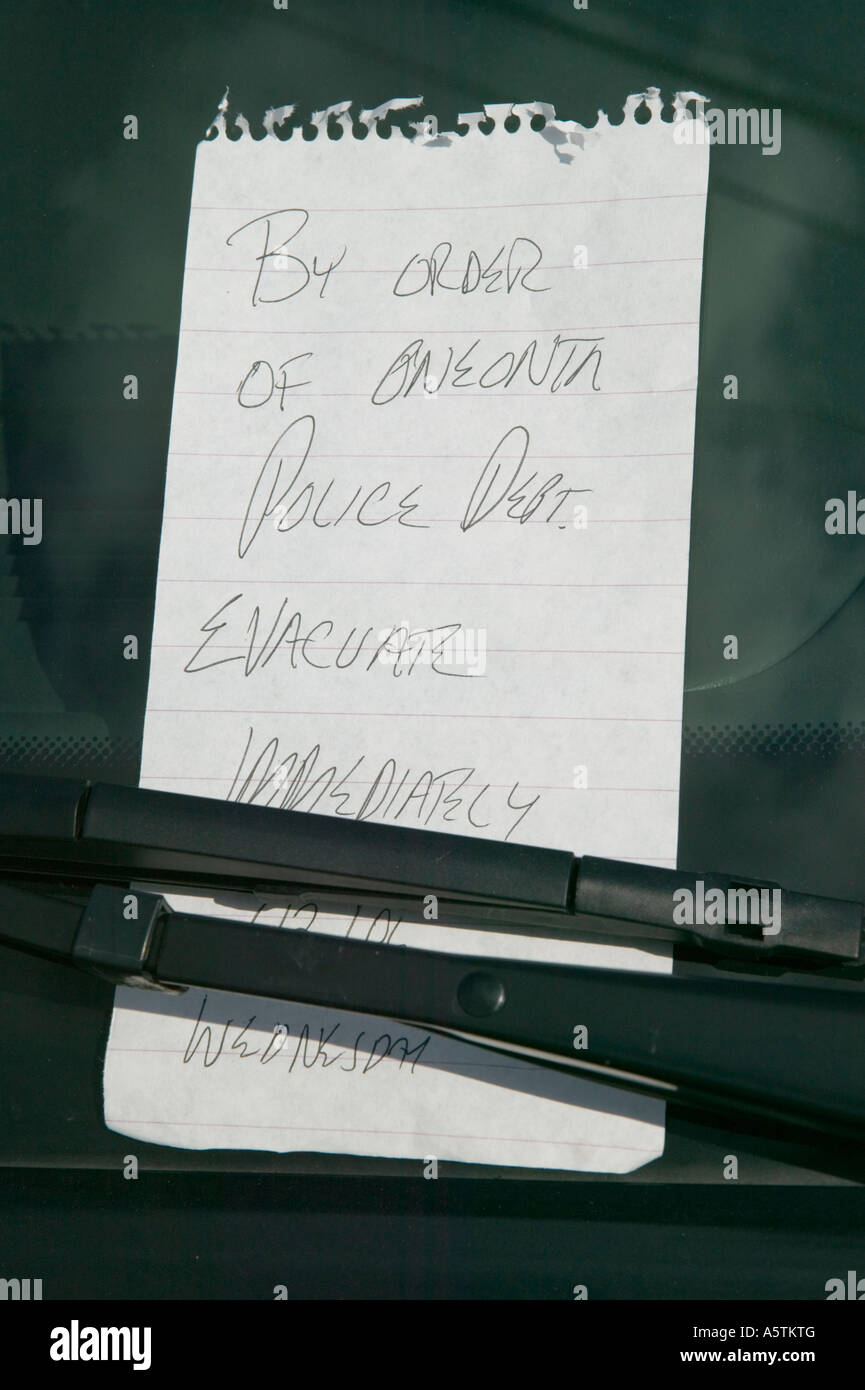 By ORDER
OF ONEONTA
POLICE DEPT.
EVACUATE
IMMEDIATELY
WEDNESDAY
alamy
Image ID: A5TKTG
www.alamy.com